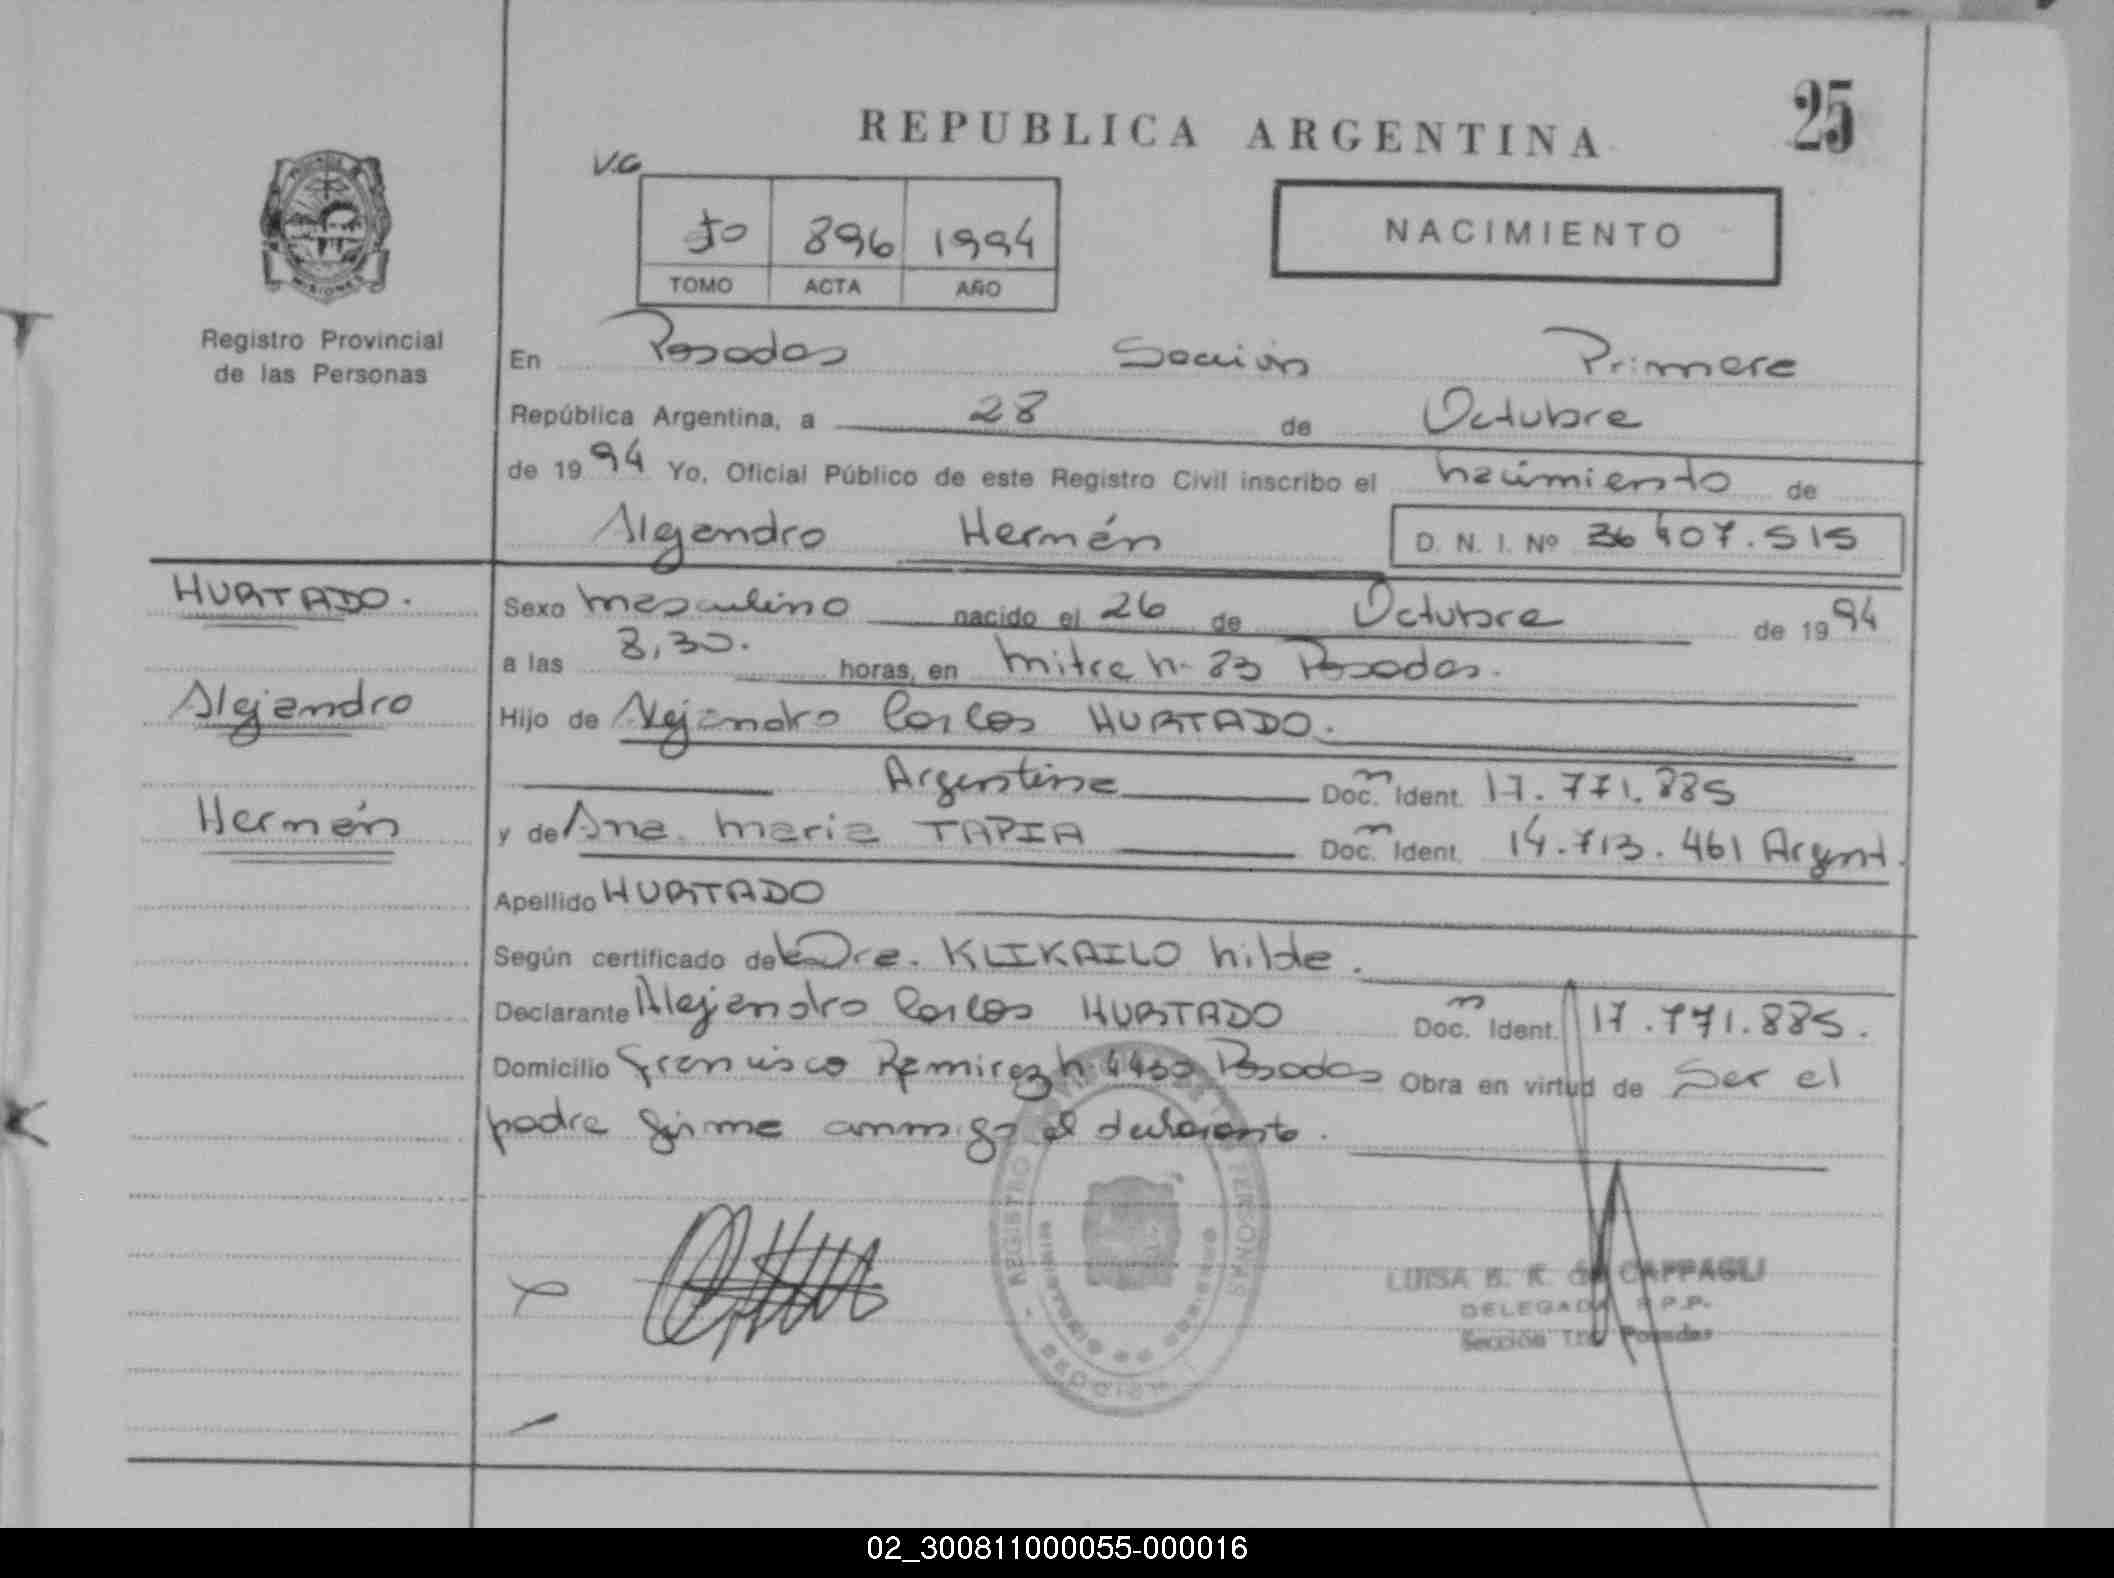 25
REPUBLICA ARGENTINA
V.G
NACIMIENTO
50 896 1994
TOMO ACTA AÑO
MISIONES
Registro Provincial
de las Personas
En Posadas Sección Primera
República Argentina, a 28 de Octubre
de 1994 Yo, Oficial Público de este Registro Civil inscribo el nacimiento de
Alejandro Hermán D. N. I. Nº 36 407.515
HURTADO.
Alejandro
Hermán
Sexo masculino nacido el 26 de Octubre de 1994
a las 8,30. horas, en Mitre n- 83 Posadas.
Hijo de Alejandro Carlos HURTADO.
Argentina Doc.n Ident. 17.771.885
y de Ana Maria TAPIA Doc.n Ident. 14.713.461 Argent.
Apellido HURTADO
Según certificado de la Dra. KLIKAILO hilda.
Declarante Alejandro Carlos HURTADO Doc.n Ident. 17.771.885.
Domicilio Francisco Ramirez n- Posadas Obra en virtud de Ser el
padre firma conmigo el declarante.
REGISTRO PERSONAS
LUISA B. K. de CAPPAGLI
DELEGADA R.P.P.
Sección 1ra Posadas
02_300811000055-000016